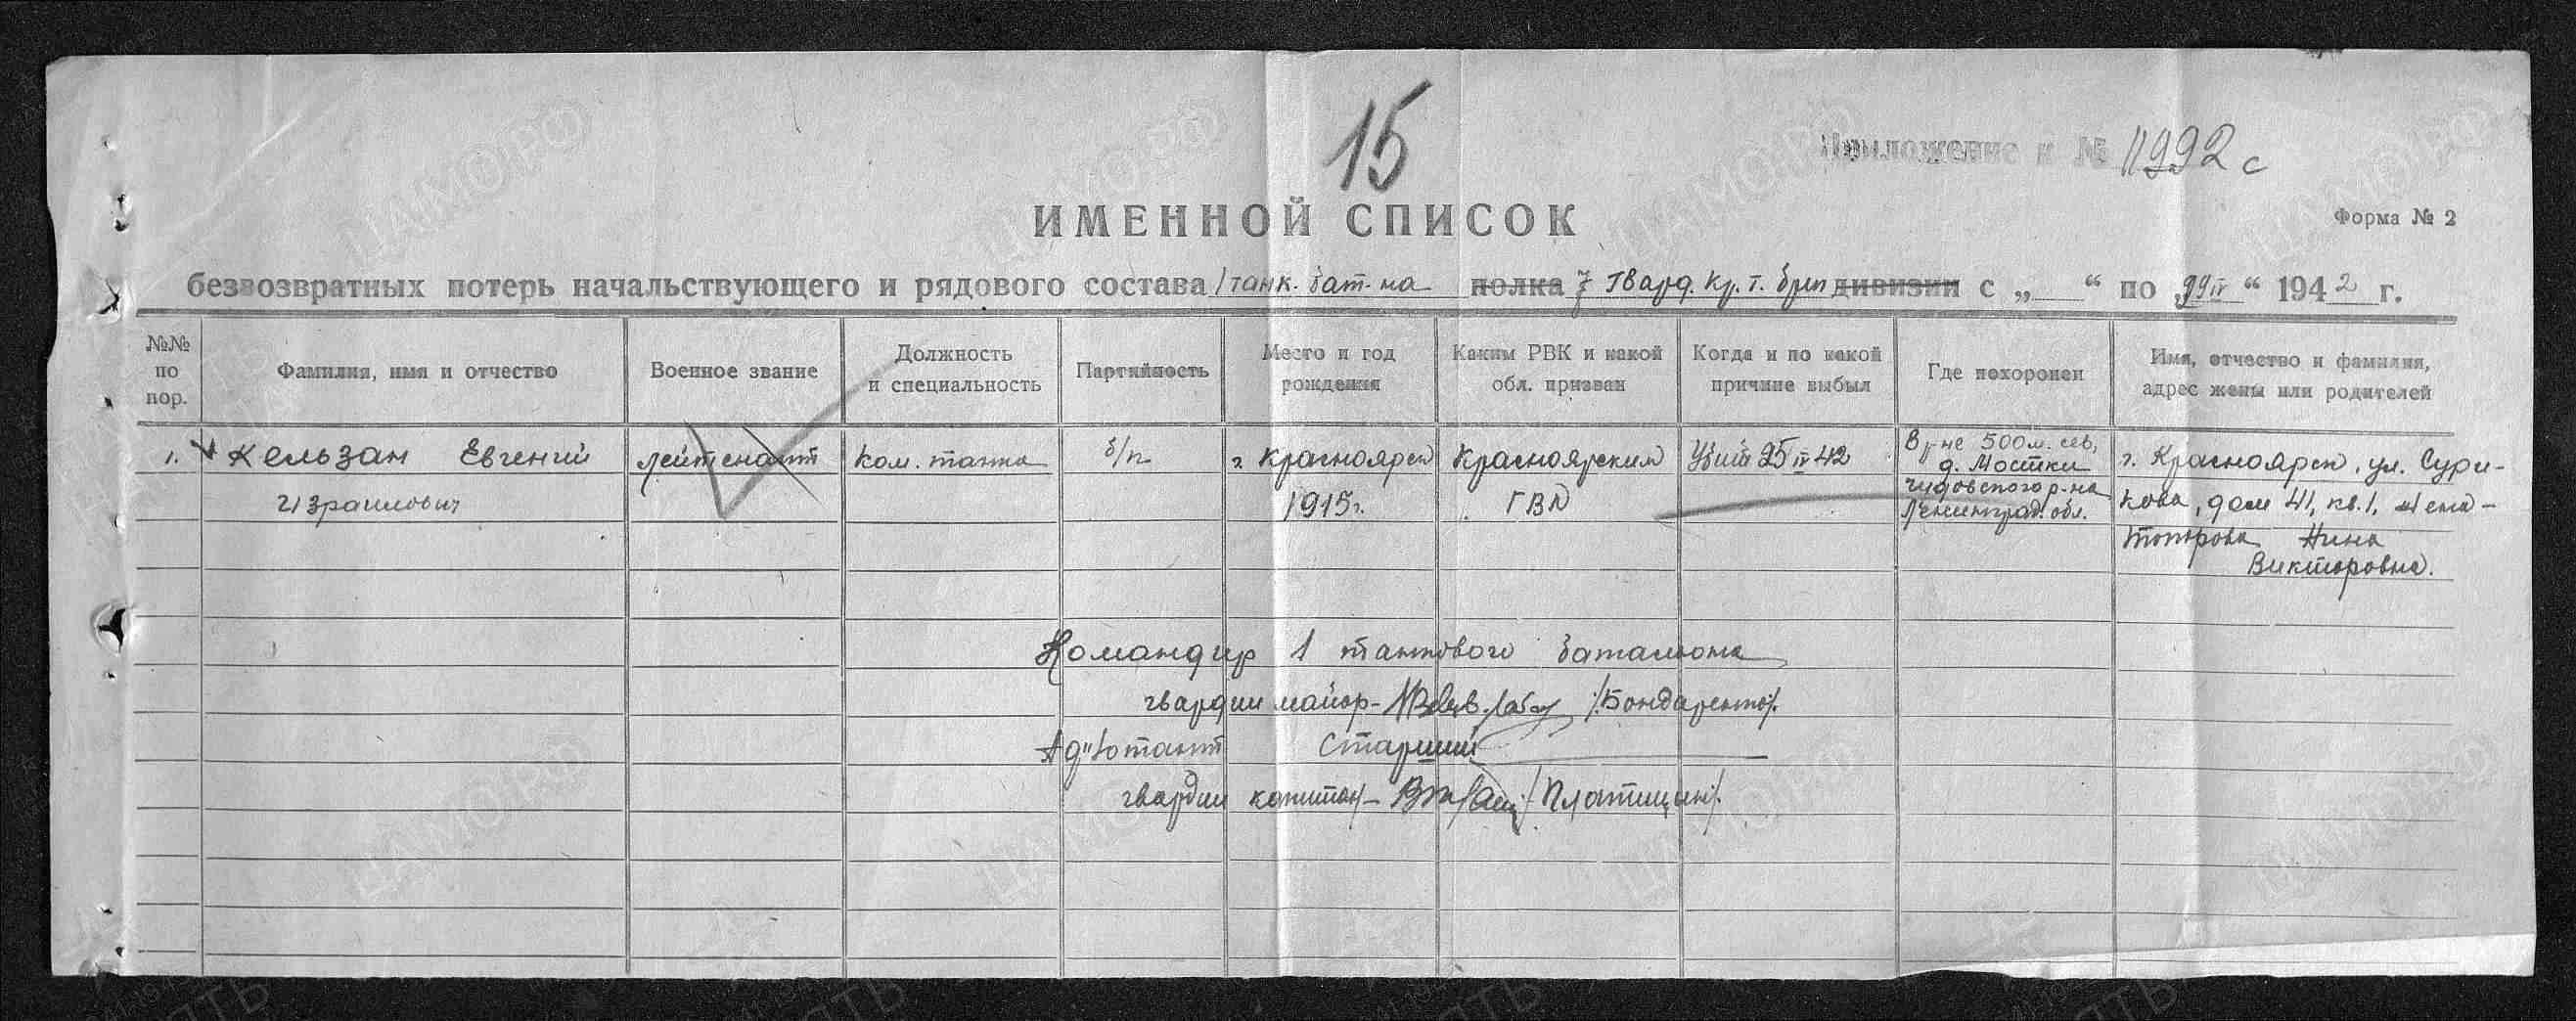 15
Приложение к № 11992с
ИМЕННОЙ СПИСОК
Форма № 2
безвозвратных потерь начальствующего и рядового состава 1 танк. бат-на полка 7 Гвард. Кр. т. бриг дивизии с „ “ по „ “ 1942 г.
№№ по пор.
Фамилия, имя и отчество
Военное звание
Должность и специальность
Партийность
Место и год рождения
Каким РВК и какой обл. призван
Когда и по какой причине выбыл
Где похоронен
Имя, отчество и фамилия, адрес жены или родителей
1. Кельзан Евгений Израилович
лейтенант
ком. танка
б/п
г. Красноярск 1915г.
Красноярским ГВК
Убит 25 IV 42
В р-не 500м. сев.
д. Мостки
Чудовского р-на
Ленинград. обл.
г. Красноярск, ул. Сури-
кова, дом 41, кв. 1, жена -
Топорова Нина
Викторовна.
Командир 1 танкового батальона
гвардии майор- /:Бондаренко/.
Ад"ютант Старший
гвардии капитан- /Платицын/.
ЦАМО.РФ